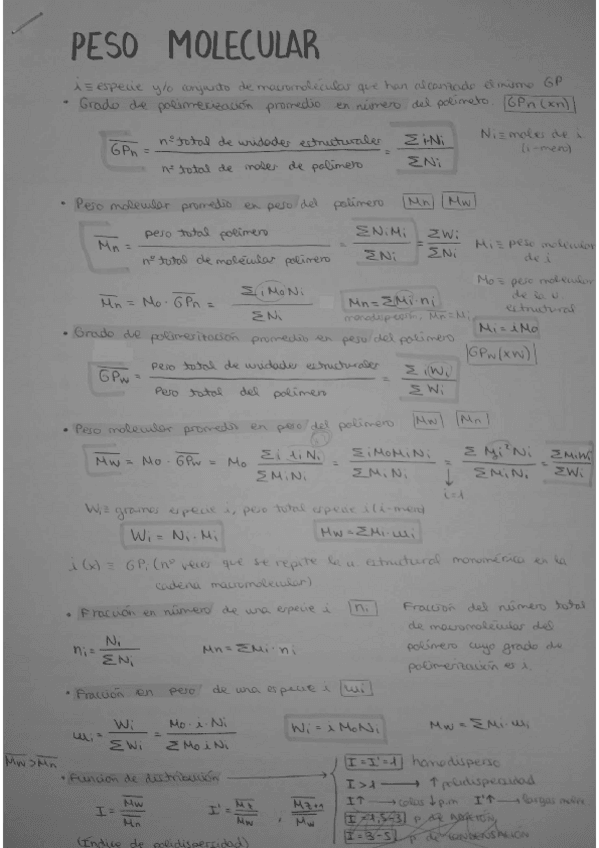 PESO MOLECULAR
i ≡ especie y/o conjunto de macromoléculas que han alcanzado el mismo GP
• Grado de polimerización promedio en número del polímero GPn (xn)
GPn = nº total de unidades estructurales / nº total de moles de polímero = Σ i·Ni / Σ Ni
Ni ≡ moles de i (i-mero)
• Peso molecular promedio en peso del polímero Mn Mw
Mn = peso total polímero / nº total de moléculas polímero = Σ Ni Mi / Σ Ni = Σ Wi / Σ Ni
Mi ≡ peso molecular de i
Mo ≡ peso molecular de la u. estructural
Mn = Mo · GPn = Σ i Mo Ni / Σ Ni
Mn = Σ Mi · ni
Mn = Mi
Mi = i Mo
• Grado de polimerización promedio en peso del polímero GPw (xw)
GPw = Peso total de unidades estructurales / Peso total del polímero = Σ i Wi / Σ Wi
• Peso molecular promedio en peso del polímero Mw Mn
Mw = Mo · GPw = Mo = Σ i Mo Mi Ni / Σ Mi Ni = Σ Mi² Ni / Σ Mi Ni = Σ Mi Wi / Σ Wi
i=1
Wi ≡ gramos especie i, peso total especie i (i-mero)
Wi = Ni · Mi
Mw = Σ Mi · wi
i (x) ≡ GPi (nº veces que se repite la u. estructural monomérica en la
cadena macromolecular)
• Fracción en número de una especie i ni
Fracción del número total
de macromoléculas del
polímero cuyo grado de
polimerización es i.
ni = Ni / Σ Ni
Mn = Σ Mi · ni
• Fracción en peso de una especie i wi
wi = Wi / Σ Wi = Mo · i · Ni / Σ Mo i Ni
Wi = i Mo Ni
Mw = Σ Mi · wi
Mw > Mn
• Función de distribución
I = I' = 1 homodisperso
I > 1 → ↑ polidispersidad
I↑ → colas ↓ p.m I'↑ →
I = Mw / Mn
I' = Mz / Mw , Mz+1 / Mw
I = 1,5-3 p. de ADICIÓN,
I = 3-5 p. de CONDENSACIÓN
(Índice de polidispersidad)